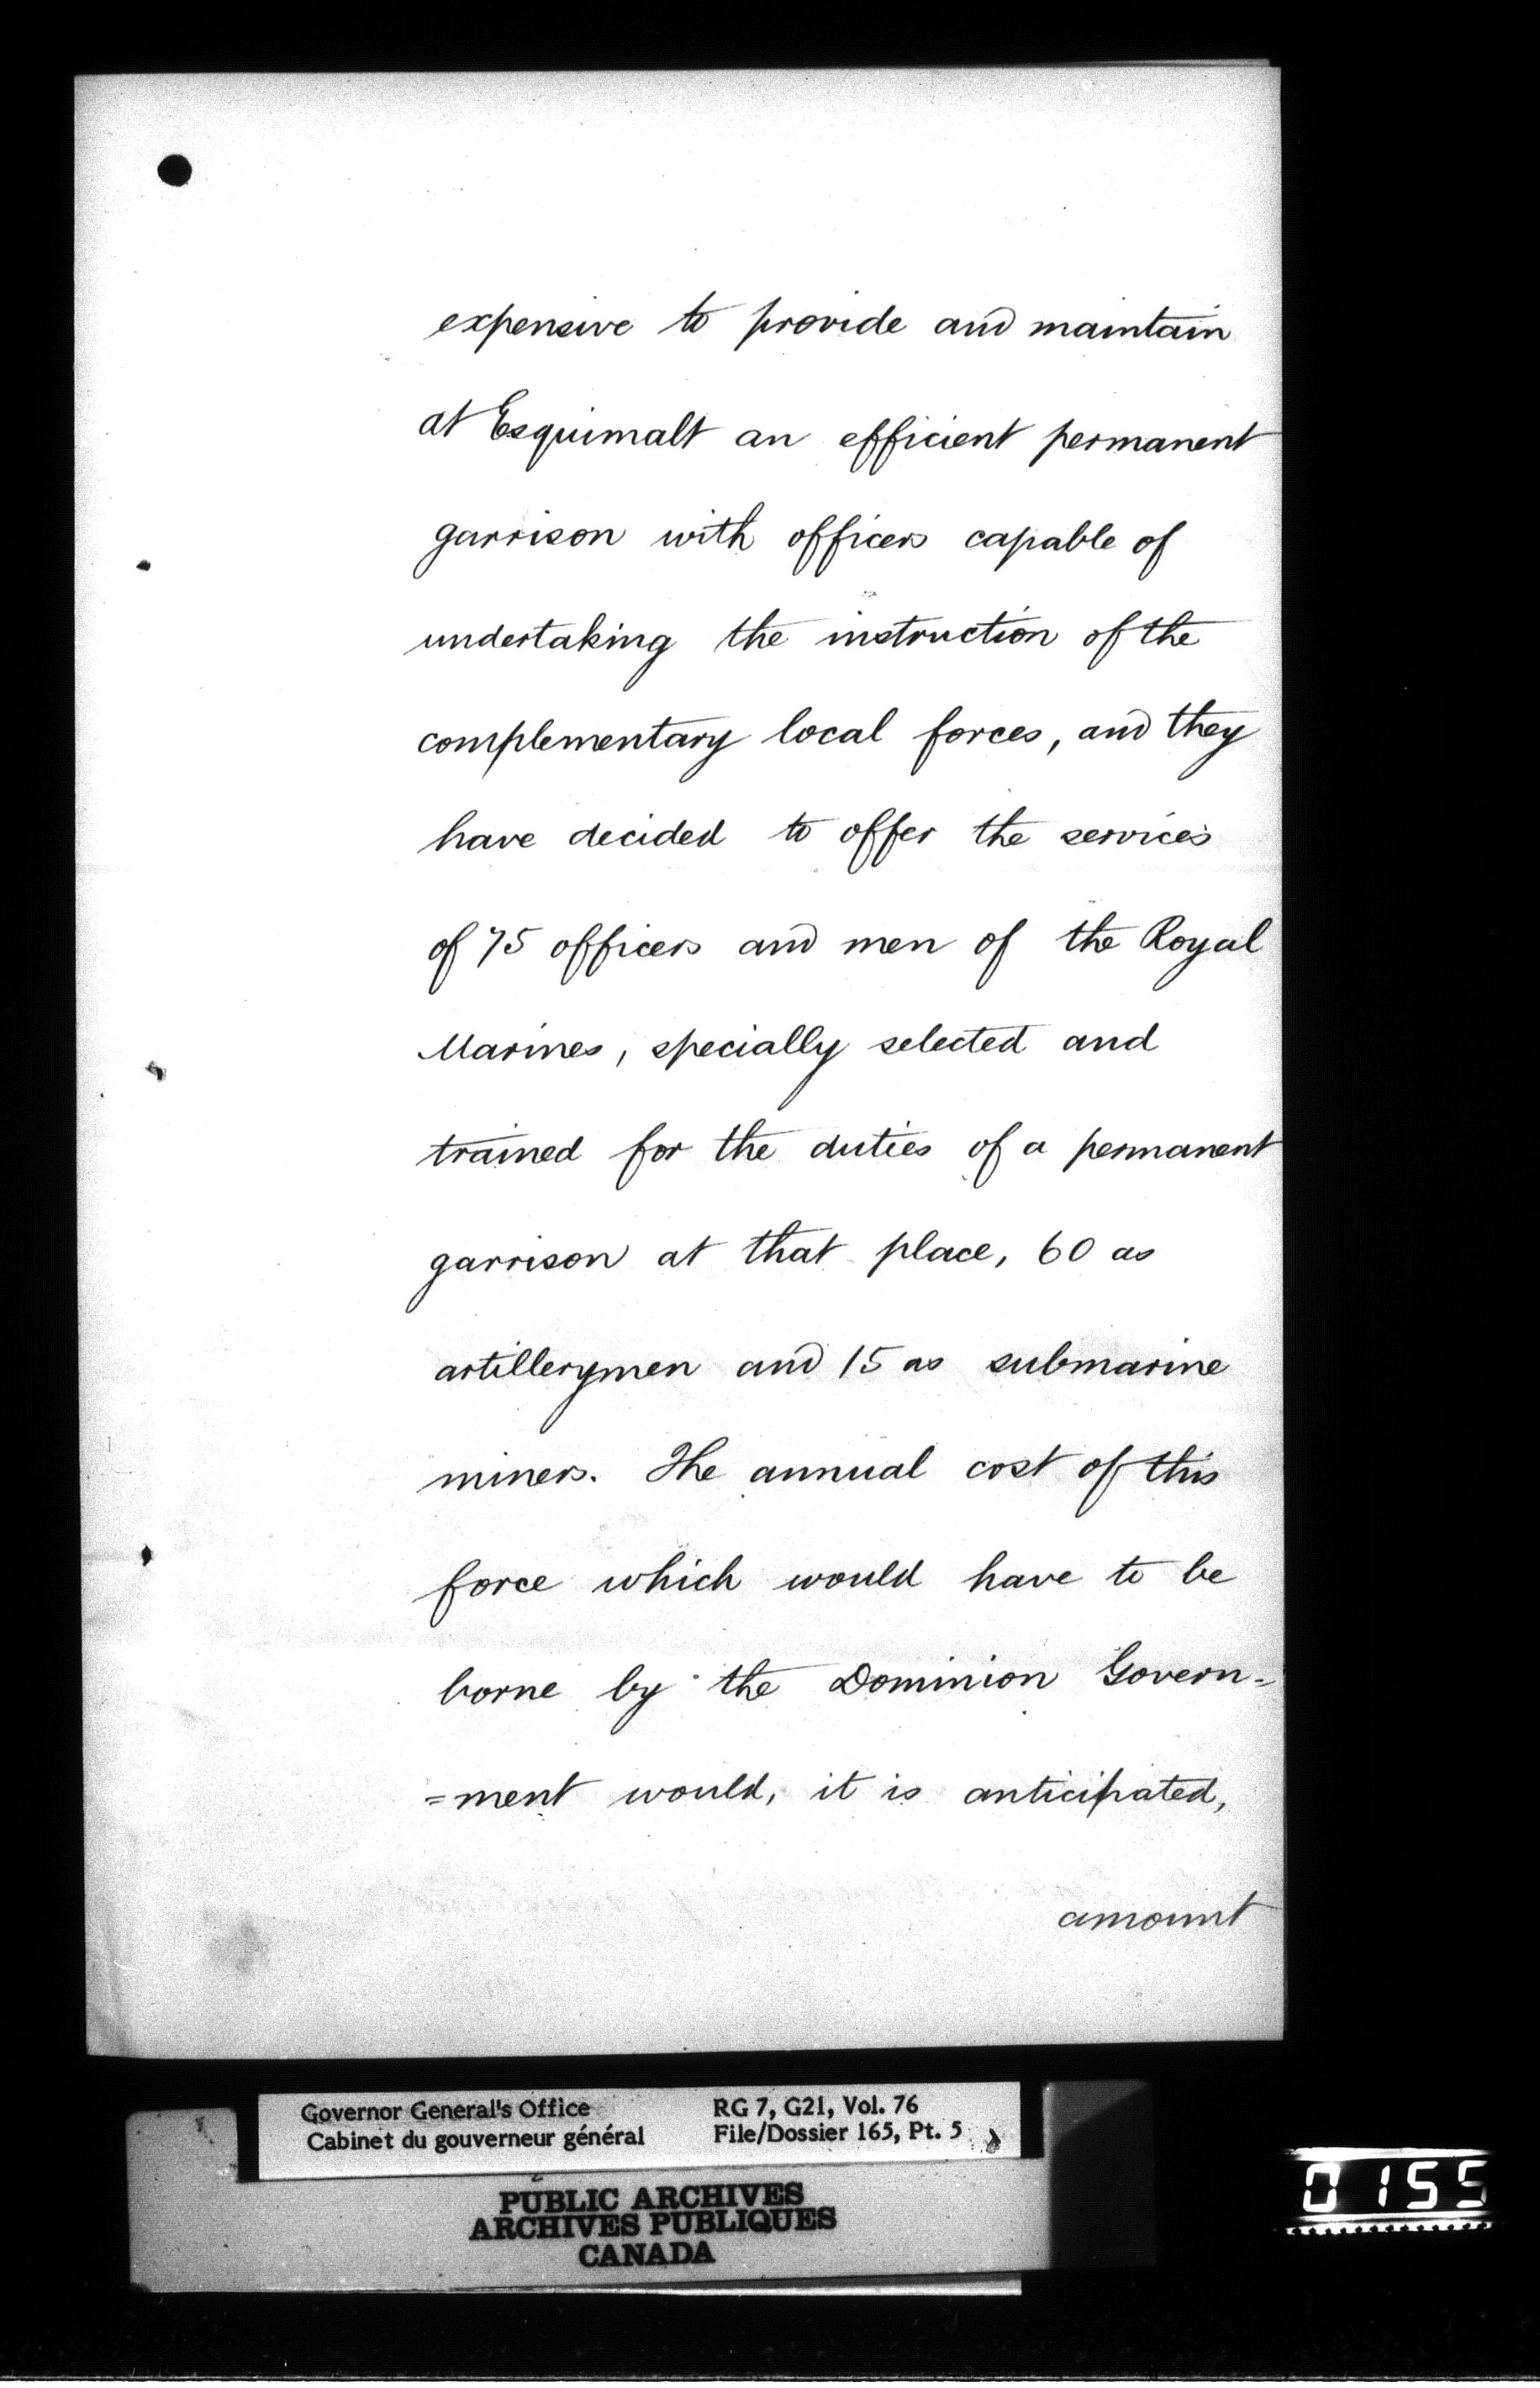 expensive to provide and maintain
at Esquimalt an efficient permanent
garrison with officers capable of
undertaking the instruction of the
complementary local forces, and they
have decided to offer the services
of 75 officers and men of the Royal
Marines, specially selected and
trained for the duties of a permanent
garrison at that place, 60 as
artillerymen and 15 as submarine
miners. The annual cost of this
force which would have to be
borne by the Dominion Govern=
=ment would, it is anticipated,
amount
Governor General's Office RG 7, G21, Vol. 76
Cabinet du gouverneur général File/Dossier 165, Pt. 5
PUBLIC ARCHIVES
ARCHIVES PUBLIQUES
CANADA
0155